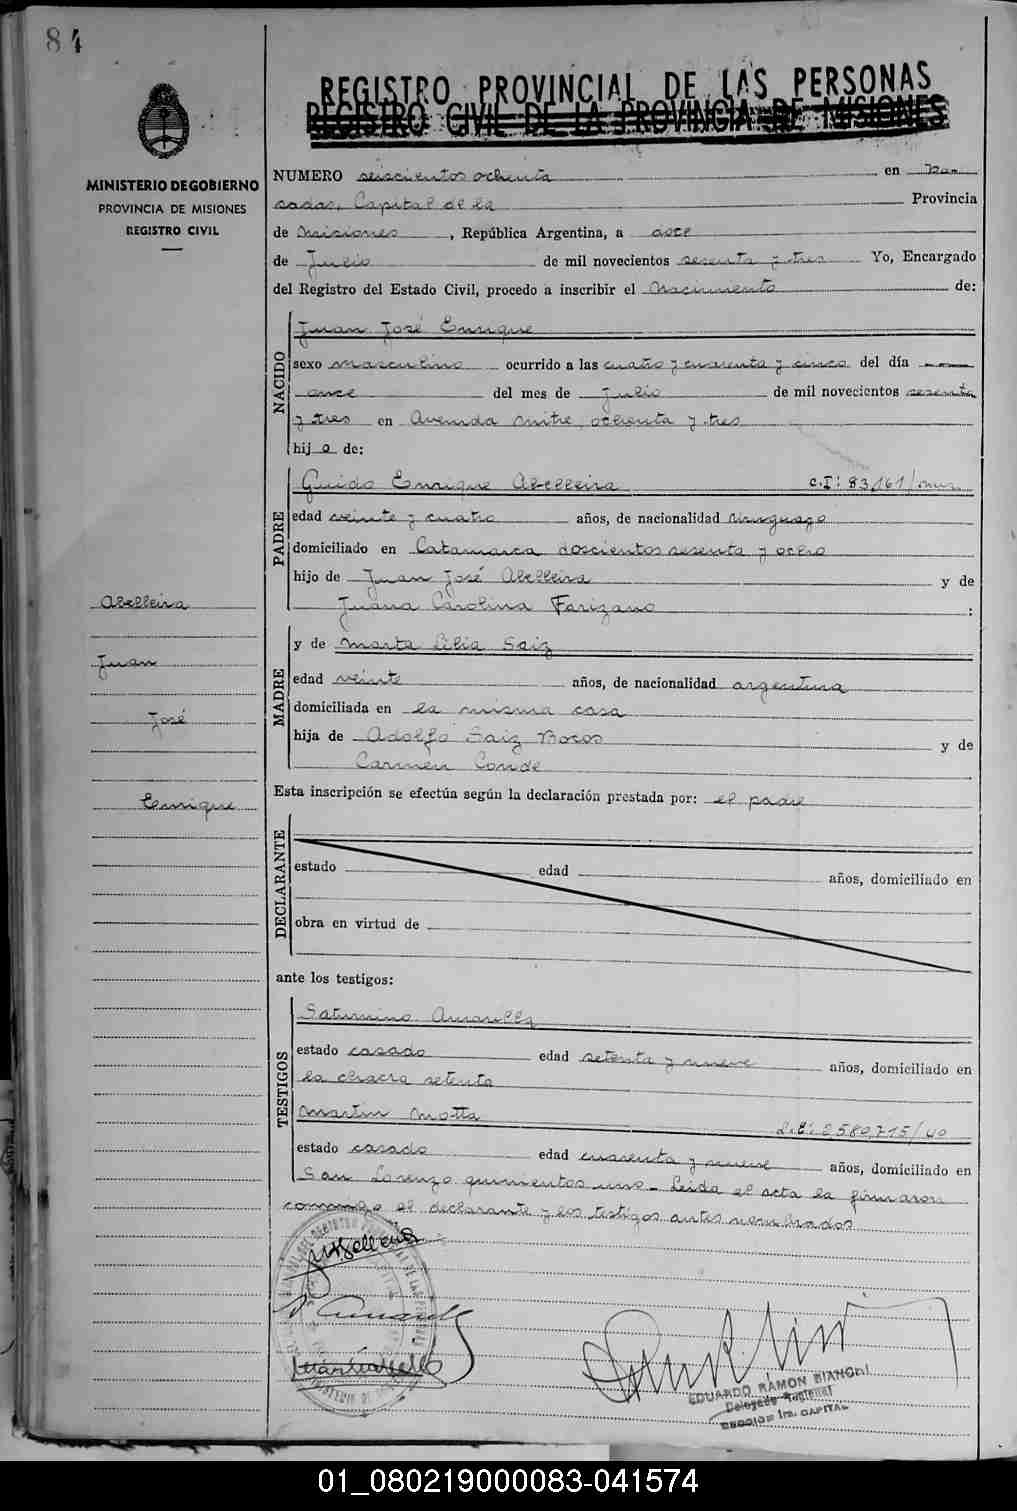 84
REGISTRO PROVINCIAL DE LAS PERSONAS
REGISTRO CIVIL DE LA PROVINCIA DE MISIONES
MINISTERIO DE GOBIERNO
PROVINCIA DE MISIONES
REGISTRO CIVIL
NUMERO seiscientos ochenta en Po-
sadas, Capital de la Provincia
de Misiones, República Argentina, a doce
de Julio de mil novecientos sesenta y tres Yo, Encargado
del Registro del Estado Civil, procedo a inscribir el Nacimiento de:
NACIDO
Juan José Enrique
sexo masculino ocurrido a las cuatro y cuarenta y cinco del día
once del mes de Julio de mil novecientos sesenta
y tres en Avenida Mitre, ochenta y tres
hijo de:
PADRE
Guido Enrique Abelleira C.I: 83,161/
edad veinte y cuatro años, de nacionalidad uruguayo
domiciliado en Catamarca doscientos sesenta y ocho
hijo de Juan José Abelleira y de
Juana Carolina Farizano :
Abelleira
Juan
José
Enrique
MADRE
y de Marta Lilia Saiz
edad veinte años, de nacionalidad argentina
domiciliada en la misma casa
hija de Adolfo Saiz Bocos y de
Carmen Conde
Esta inscripción se efectúa según la declaración prestada por: el padre
DECLARANTE
estado edad años, domiciliado en
obra en virtud de
ante los testigos:
TESTIGOS
Saturnino Amarilla
estado casado edad setenta y nueve años, domiciliado en
la chacra setenta
Martin Motta L.E. 2580,715/40
estado casado edad cuarenta y nueve años, domiciliado en
San Lorenzo quinientos uno- Leida el acta la firmaron
conmigo el declarante y los testigos antes nombrados
EDUARDO RAMON BIANCHI
Delegado Regional
SECCION 1ra. CAPITAL
01_080219000083-041574